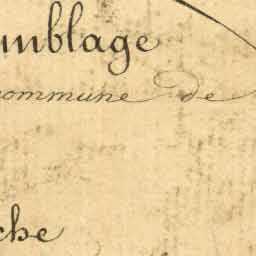 mblage
commune de
che